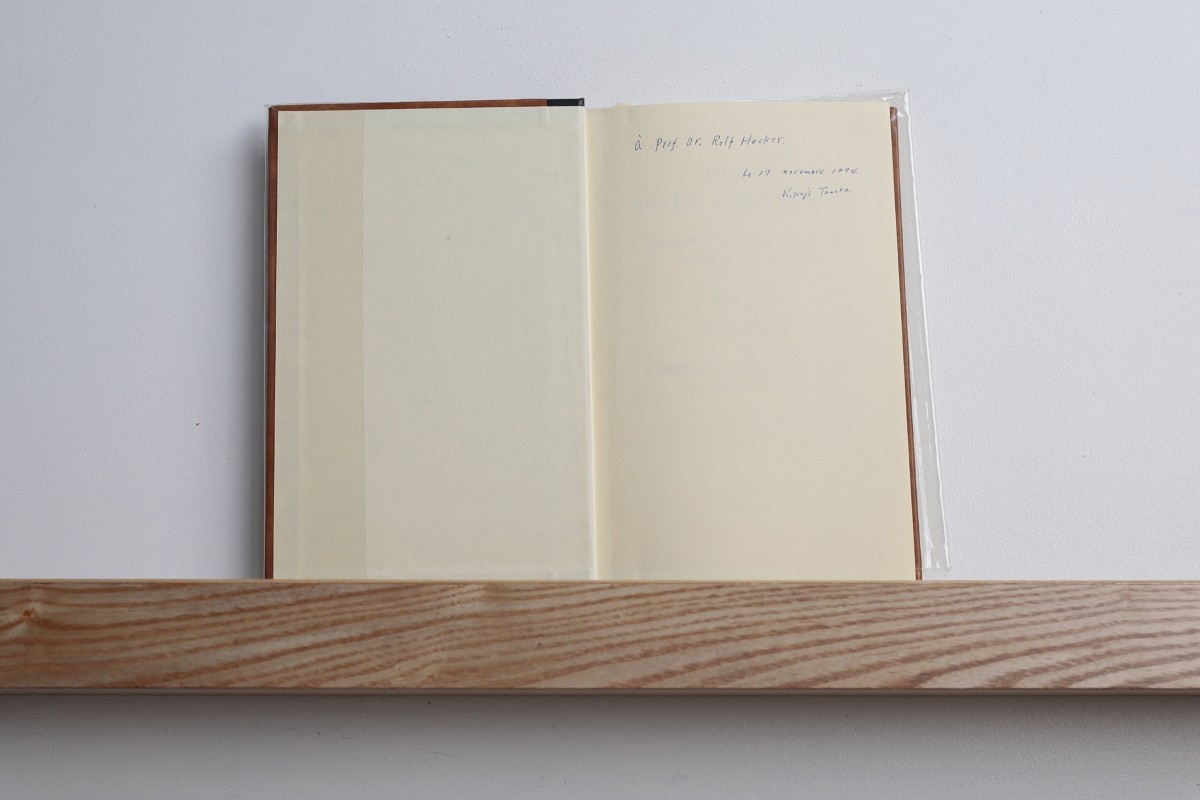 à Prof. Dr. Rolf Hecker.
Le 17 novembre 1994
Kikuji Tanaka